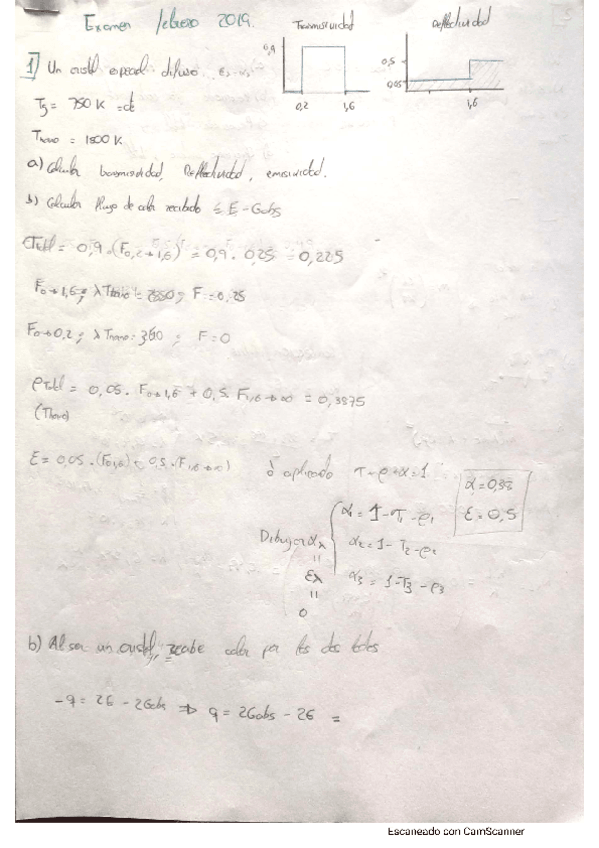 Examen febrero 2019.
Transmisividad
Reflectividad
0,9
0,2
1,6
0,5
0.05
1,6
1) Un cristal especial difuso
T3 = 750 K = cte
Thorno = 1800 K
a) Calcular transmisividad, Reflectividad, emisividad.
b) Calcular flujo de calor recibido = E - Gabs
τTotal = 0,9 · (F0,2→1,6) = 0,9 · 0,25 = 0,225
F0→1,6 ; λ Thorno = 2880 ; F = 0,25
F0→0.2 ; λ Thorno = 360 ; F = 0
ρTotal = 0,05 · F0→1,6 + 0,5 · F1,6→∞ = 0,3875
(Thorno)
ε = 0,05 · (F0→1,6) + 0,5 · (F1,6→∞)
ó aplicando τ + ρ + α = 1
α = 0,38
ε = 0,5
Dibujar αλ
=
ελ
=
0
α1 = 1 - τ1 - ρ1
α2 = 1 - τ2 - ρ2
α3 = 1 - τ3 - ρ3
b) Al ser un cristal, recibe calor por los dos lados
-q = 2E - 2Gabs ⇒ q = 2Gabs - 2E =
Escaneado con CamScanner